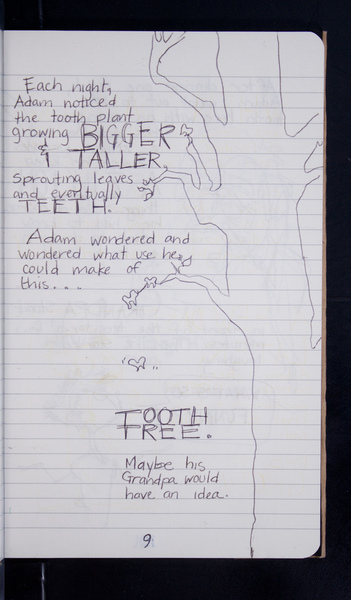 Each night,
Adam noticed
the tooth plant
growing BIGGER
& TALLER,
sprouting leaves
and eventually
TEETH.
Adam wondered and
wondered what use he
could make of
this...
TOOTH
TREE.
Maybe his
Grandpa would
have an idea.
9